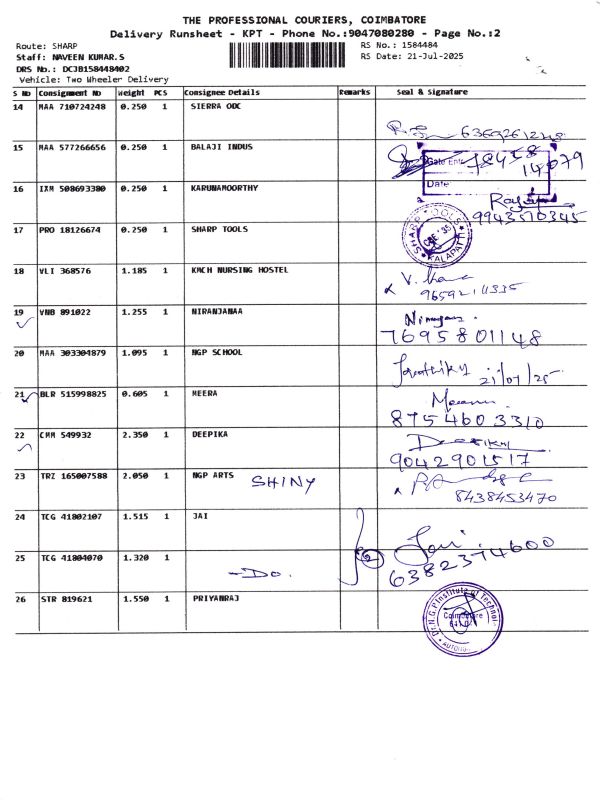 THE PROFESSIONAL COURIERS, COIMBATORE
Delivery Runsheet - KPT - Phone No.:9047080280 - Page No.:2
Route: SHARP
RS No.: 1584484
Staff: NAVEEN KUMAR.S
RS Date: 21-Jul-2025
DRS No.: DCJB158448402
Vehicle: Two Wheeler Delivery
S No Consignment No Weight PCS Consignee Details Remarks Seal & Signature
14 MAA 710724248 0.250 1 SIERRA ODC
15 MAA 577266656 0.250 1 BALAJI INDUS
Gate Ent
14079
Date
16 IXM 508693380 0.250 1 KARUNAMOORTHY
9943570345
17 PRO 18126674 0.250 1 SHARP TOOLS
SHARP TOOLS
KALAPATTI
CBE - 35
18 VLI 368576 1.185 1 KMCH NURSING HOSTEL
19 VNB 891022 1.255 1 NIRANJANAA
7695801148
20 MAA 303304879 1.095 1 NGP SCHOOL
21/07/25
21 BLR 515998825 0.605 1 MEERA
8754603310
22 CMM 549932 2.350 1 DEEPIKA
9042901517
23 TRZ 165007588 2.050 1 NGP ARTS SHINY
8438453470
24 TCG 41802107 1.515 1 JAI
2
6382374600
25 TCG 41804070 1.320 1 -Do.
26 STR 819621 1.550 1 PRIYANRAJ
Dr.N.G.P Institute of Technol
Coimbatore
AUTONO